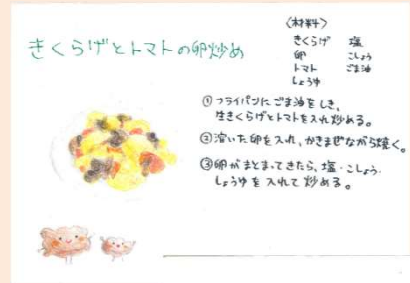 きくらげとトマトの卵炒め
〈材料〉
きくらげ 塩
卵 こしょう
トマト ごま油
しょうゆ
① フライパンにごま油をしき、
生きくらげとトマトを入れ炒める。
② 溶いた卵を入れ、かきまぜながら焼く。
③ 卵がまとまってきたら、塩・こしょう・
しょうゆを入れて炒める。